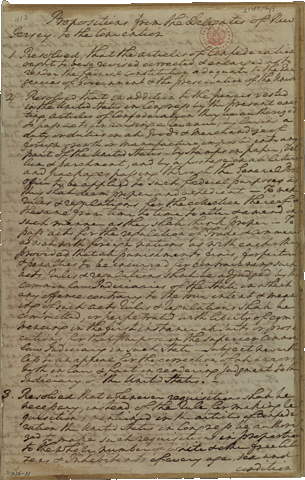 Propositions from the Deputies of New
Jersey to the Convention
1. Resolved, that the articles of Confederation
ought to be so revised corrected & enlarged as to
render the federal Constitution adequate to the Exi-
gencies of Government & the preservation of the Union
2. Resolved that in addition to the powers vested
in the United States in Congress by the present exis-
ting articles of Confederation they be authorized
to pass acts for raising a revenue by levying a
duty or duties on all Goods & Merchandizes of
foreign growth or manufacture imported into any
part of the United States by stamps on paper
and by a postage on all letters
and packages passing through the General Post
office to be applied to such federal purposes as
they shall deem proper and expedient — To make
rules & regulations for the collection thereof
the same from time to time to alter & amend in
such manner as they shall think proper — To
pass acts for the regulation of Trade & Commerce
as well with foreign nations as with each other
provided that all punishments fines forfeitures
& penalties to be incurred for contravening such
acts rules & regulations shall be adjudged by the
common law Judiciaries of the State in which
any offence contrary to the true intent & mean-
ing of such acts rules & regulations shall be
committed or perpetrated with liberty of com-
mencing in the first instance all suits or prose-
cutions for that purpose in the superior common
law Judiciary in such State, subject neverthe-
less to an appeal for the correction of all errors
both in law & fact in rendering Judgment to the
Judiciary of the United States. —
3. Resolved that whenever requisitions shall be
necessary instead of the rule for making re-
quisitions mentioned in the articles of Confede-
ration the United States in Congress be author-
ized to make such requisitions in proportion
to the whole number of white & other free citi-
zens & Inhabitants of every age sex and
condition